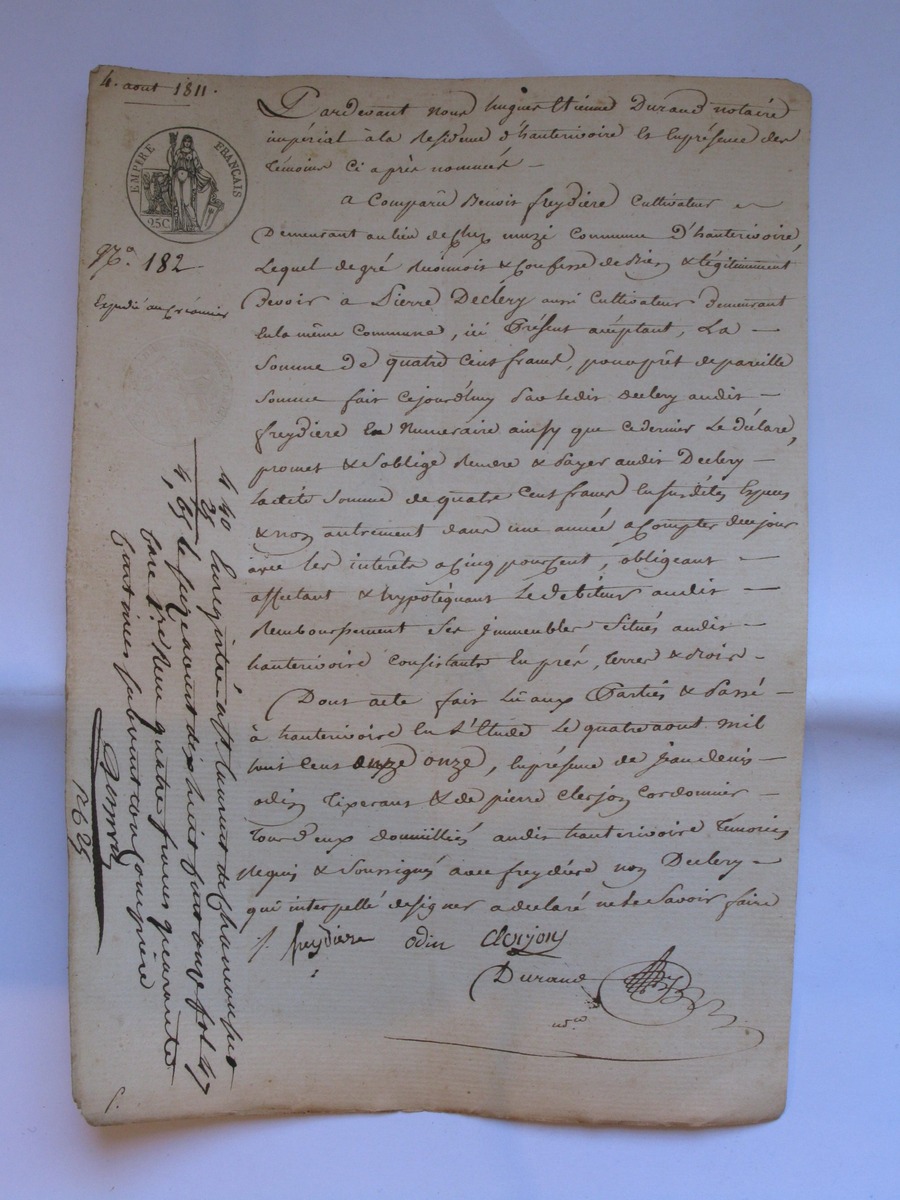 4. aout 1811.
EMPIRE FRANÇAIS
25C
N.o 182
Expedié au créancier
Pardevant nous hugues Etienne Durand notaire
impérial à la Residence d'hauterivoire Et En présence des
témoins ci après nommés —
a Comparu Benoit freydiere Cultivateur
Demeurant au lieu de chez muzi Commune D'hauterivoire,
Lequel de gré Reconnois & Confesse de bien & légitimement
Devoir à Pierre Declery aussi Cultivateur demeurant
En la même Commune, ici Présent acceptant, La —
Somme De quatre Cent francs, pour prêt de pareille
Somme fait cejourd'huy Par ledit Declery audit —
freydiere En Numeraire ainsy que ce dernier Le déclare,
promet & s'oblige Rendre & Payer audit Declery —
ladite Somme de quatre Cent francs En susdites Especes
& non autrement dans une année a Compter de ce jour
avec les interêts a cinq pour Cent, obligeant —
affectant & hypotéquant Le debiteur audit —
Remboursement Ses Immeubles Situés audit —
hauterivoire Consistants En prés, terres & bois —
Dont acte fait Lû aux Parties & Passé —
à hauterivoire En L'Etude Le quatre aout mil
huit Cent onze onze, En présence de Jean denis —
odin tixerant & de pierre Clerjon Cordonnier —
tous d'eux domicilliés audit hauterivoire témoins
Requis & Soussignés avec freydiere non Declery —
qui interpellé de signer a declaré ne le Savoir faire
freydiere odin Clerjon
Durand
4 40 Enregistré à St Laurent de Chamousset
le seize aout dix huit cent onze fol 47
Case Reçu quatre francs quarante
centimes subvention comprise